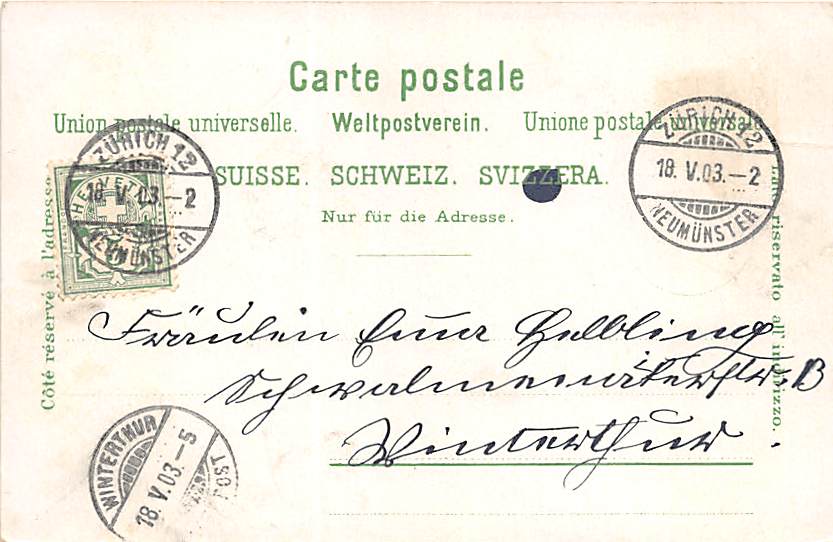 Carte postale
Union postale universelle. Weltpostverein. Unione postale universale
SUISSE. SCHWEIZ. SVIZZERA.
Nur für die Adresse.
Côté réservé à l'adresse
Lato riservato all' indirizzo.
ZÜRICH 12
18. V. 03. – 2
NEUMÜNSTER
HELVETIA
ZÜRICH 12
18. V. 03. – 2
NEUMÜNSTER
Fräulein Emma Helbling
13
Winterthur.
WINTERTHUR
18. V. 03. – 5
POST